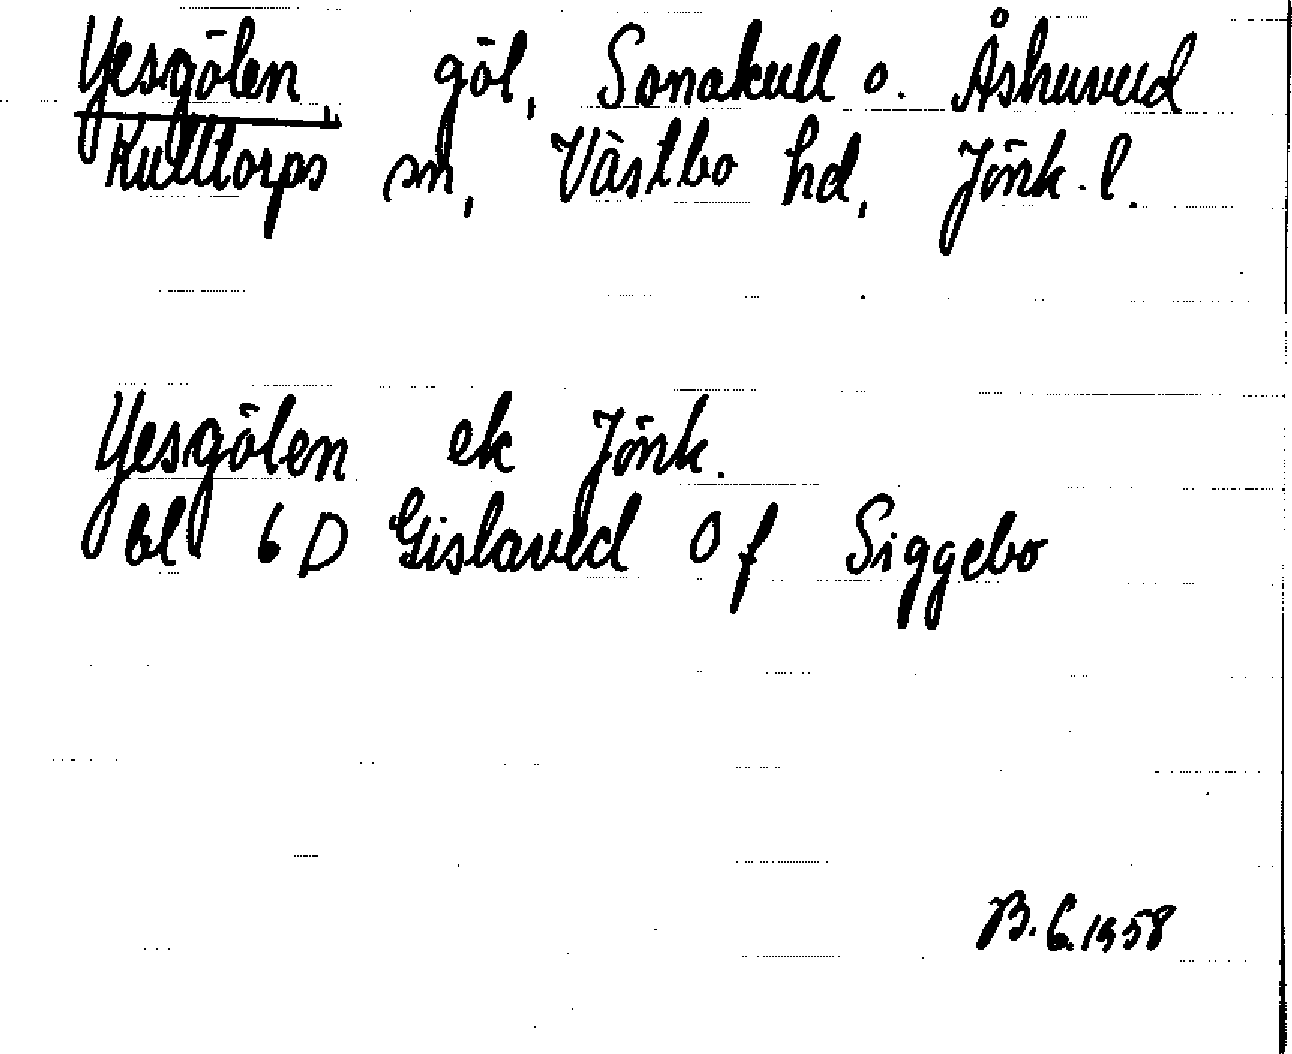 Yesgölen, göl, Sonakull o. Åshuvud
Kulltorps sn, Västbo hd, Jönk. l.
Yesgölen ek Jönk.
bl 6 D Gislaved 0 f Siggebo
B. G. 1958